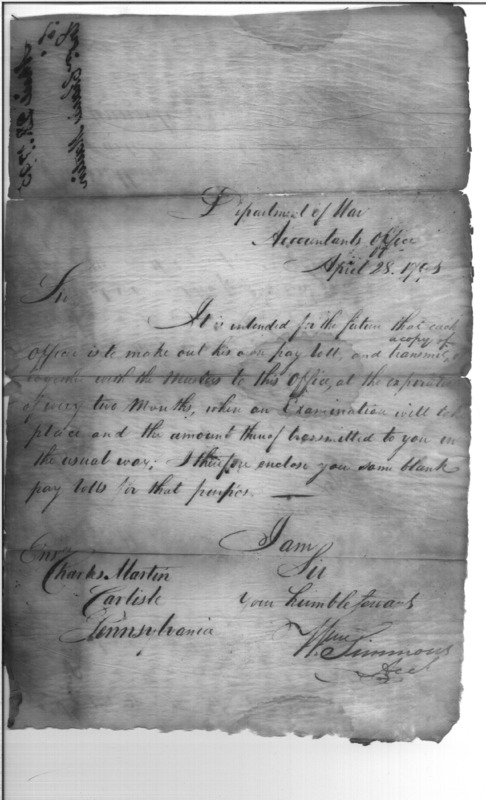 Department of War
Accountants Office
April 28. 1795
Sir
It is intended for the future that each
Officer is to make out his own pay Roll, and transmit a
copy of
together with the Musters to this Office, at the expiration
of every two Months, when an Examination will take
place and the amount thereof transmitted to you in
the usual way; I therefore enclose you some blank
pay Rolls for that purpose.
I am
Ensn
Charles Martin
Sir
Carlisle
your humble servant
Pennsylvania
Wm Simmons
Acct